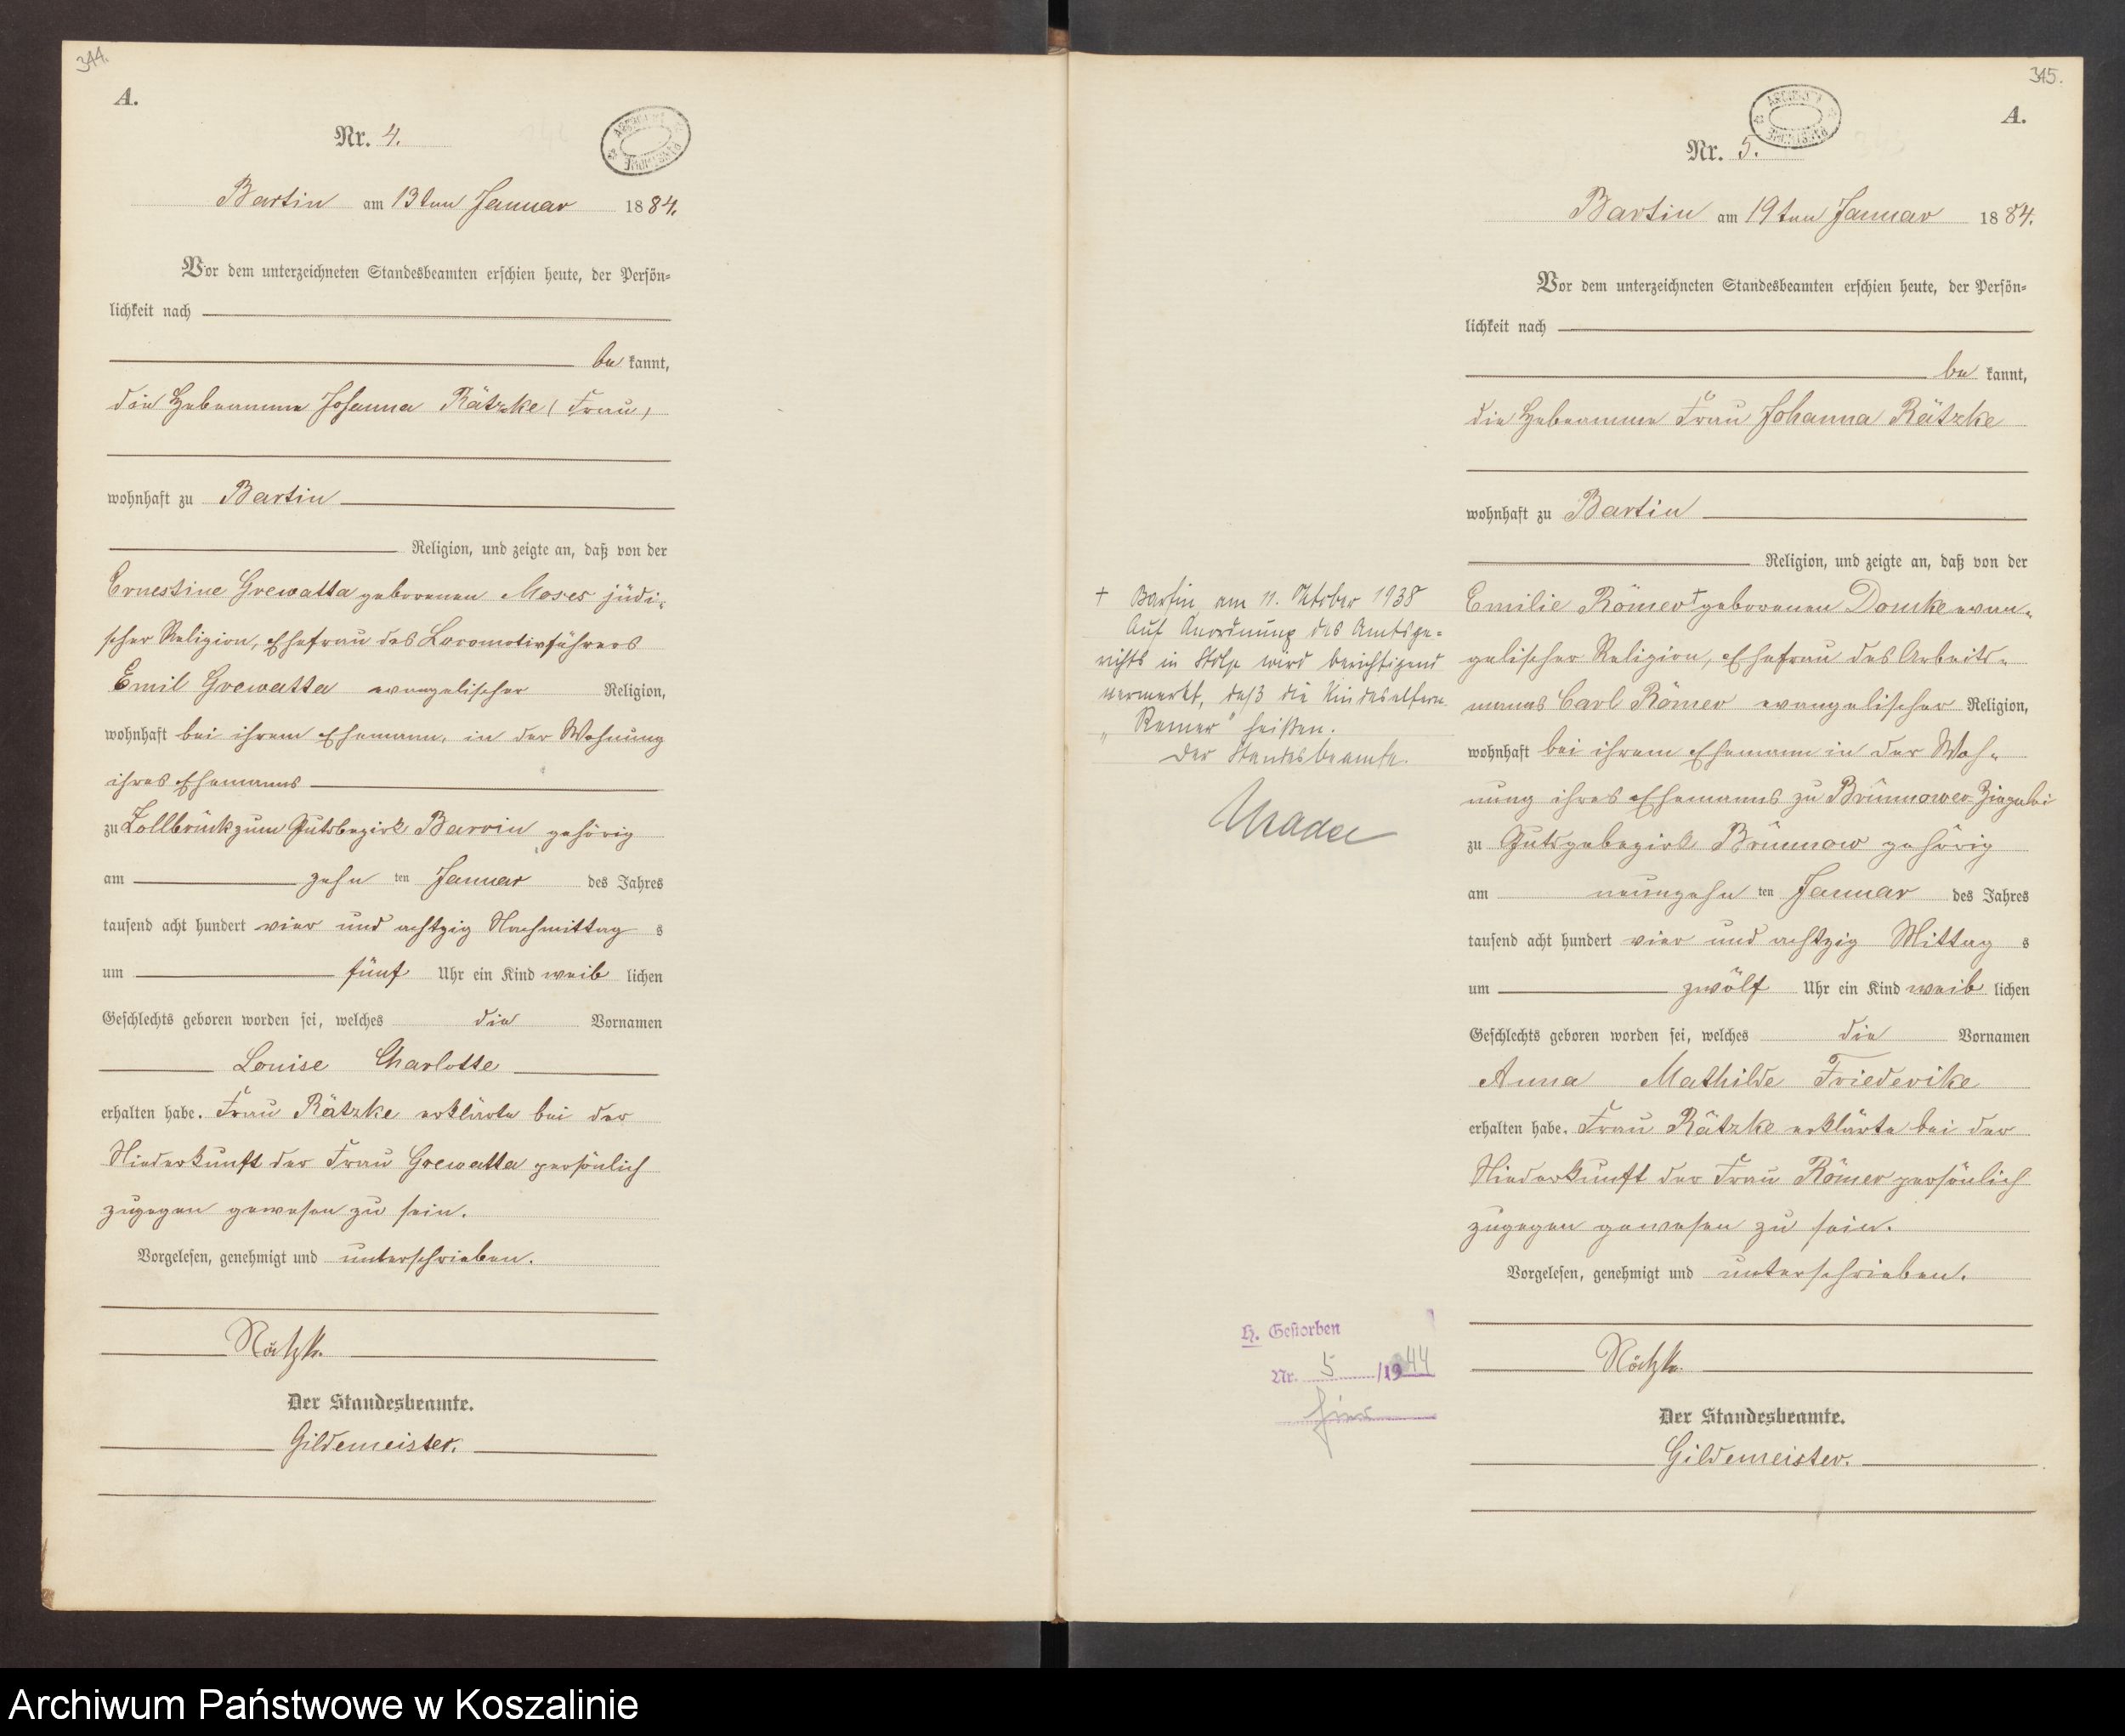 344.
A.
Nr. 4.
Bartin am 13ten Januar 1884.
Vor dem unterzeichneten Standesbeamten erschien heute, der Persön=
lichkeit nach
be kannt,
die Hebeamme Johanna Rätzke (Frau)
wohnhaft zu Bartin
Religion, und zeigte an, daß von der
Ernestine Grewatta geborenen Moses jüdi-
scher Religion, Ehefrau des Locomotivführers
Emil Grewatta evangelischer Religion,
wohnhaft bei ihrem Ehemann, in der Wohnung
ihres Ehemanns
zu Zollbrück zum Gutsbezirk Barvin gehörig
am zehn ten Januar des Jahres
tausend acht hundert vier und achtzig Nachmittag s
um fünf Uhr ein Kind weib lichen
Geschlechts geboren worden sei, welches die Vornamen
Louise Charlotte
erhalten habe. Frau Rätzke erklärte bei der
Niederkunft der Frau Grewatta persönlich
zugegen gewesen zu sein.
Vorgelesen, genehmigt und unterschrieben.
Rätzk.
Der Standesbeamte.
Gildemeister.
345.
A.
Nr. 5.
Bartin am 19ten Januar 1884.
Vor dem unterzeichneten Standesbeamten erschien heute, der Persön=
lichkeit nach
be kannt,
die Hebeamme Frau Johanna Rätzke
wohnhaft zu Bartin
Religion, und zeigte an, daß von der
Emilie Römer + geborenen Domke evan-
gelischer Religion, Ehefrau des Arbeits-
manns Carl Römer evangelischer Religion,
wohnhaft bei ihrem Ehemann in der Woh-
nung ihres Ehemanns zu Brünnower Ziegelei
zu Gutsgebezirk Brünnow gehörig
am neunzehn ten Januar des Jahres
tausend acht hundert vier und achtzig Mittag s
um zwölf Uhr ein Kind weib lichen
Geschlechts geboren worden sei, welches die Vornamen
Anna Mathilde Friederike
erhalten habe. Frau Rätzke erklärte bei der
Niederkunft der Frau Römer persönlich
zugegen gewesen zu sein.
Vorgelesen, genehmigt und unterschrieben.
Rätzk.
Der Standesbeamte.
Gildemeister.
+ Bartin am 11. Oktober 1938
Auf Anordnung des Amtsge=
richts in Stolp wird berichtigend
vermerkt, daß die Kindeseltern
„Remer" heißen.
Der Standesbeamte.
H. Gestorben
Nr. 5 /1944
hier
Archiwum Państwowe w Koszalinie